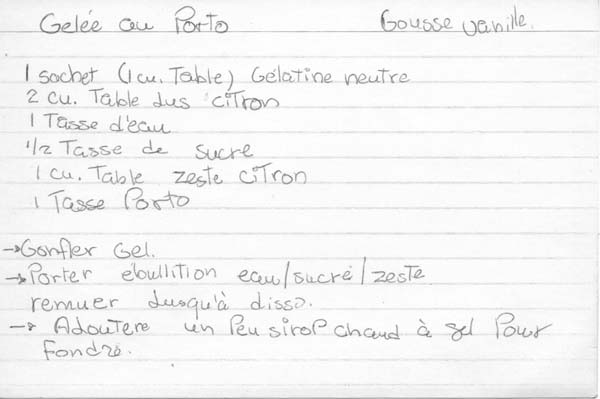 Gelée au Porto Gousse vanille.
1 sachet (1 cu. Table) Gélatine neutre
2 cu. Table Jus citron
1 Tasse d'eau
1/2 Tasse de sucre
1 cu. Table zeste citron
1 Tasse Porto
→Gonfler Gel.
→Porter ébullition eau/sucre/zeste
remuer Jusqu'à disso.
→ Ajoutere un Peu sirop chaud à gel Pour
fondre.